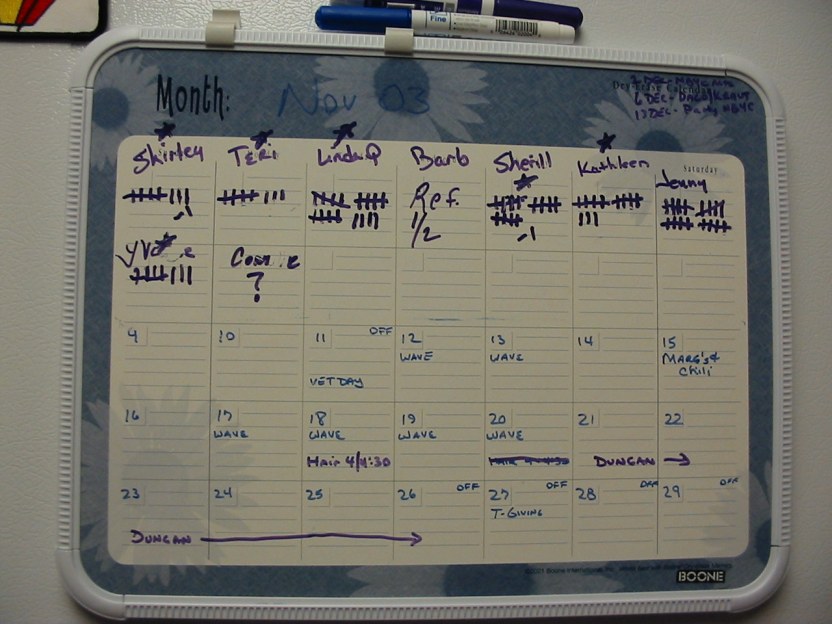 Fine
Month: Nov 03
2 DEC-
6 DEC-
13 DEC- Party
Saturday
Shirley Teri Linda P Barb Sherill Kathleen Jenny
Ref.
1/2
?
9 10 11 OFF 12 13 14 15
WAVE WAVE MARG'S &
Chili
VET DAY
16 17 18 19 20 21 22
WAVE WAVE WAVE WAVE
Hair 4/4:30 HAIR 4-4:30 DUNCAN →
23 24 25 26 OFF 27 OFF 28 OFF 29 OFF
T-GIVING
DUNCAN →
BOONE